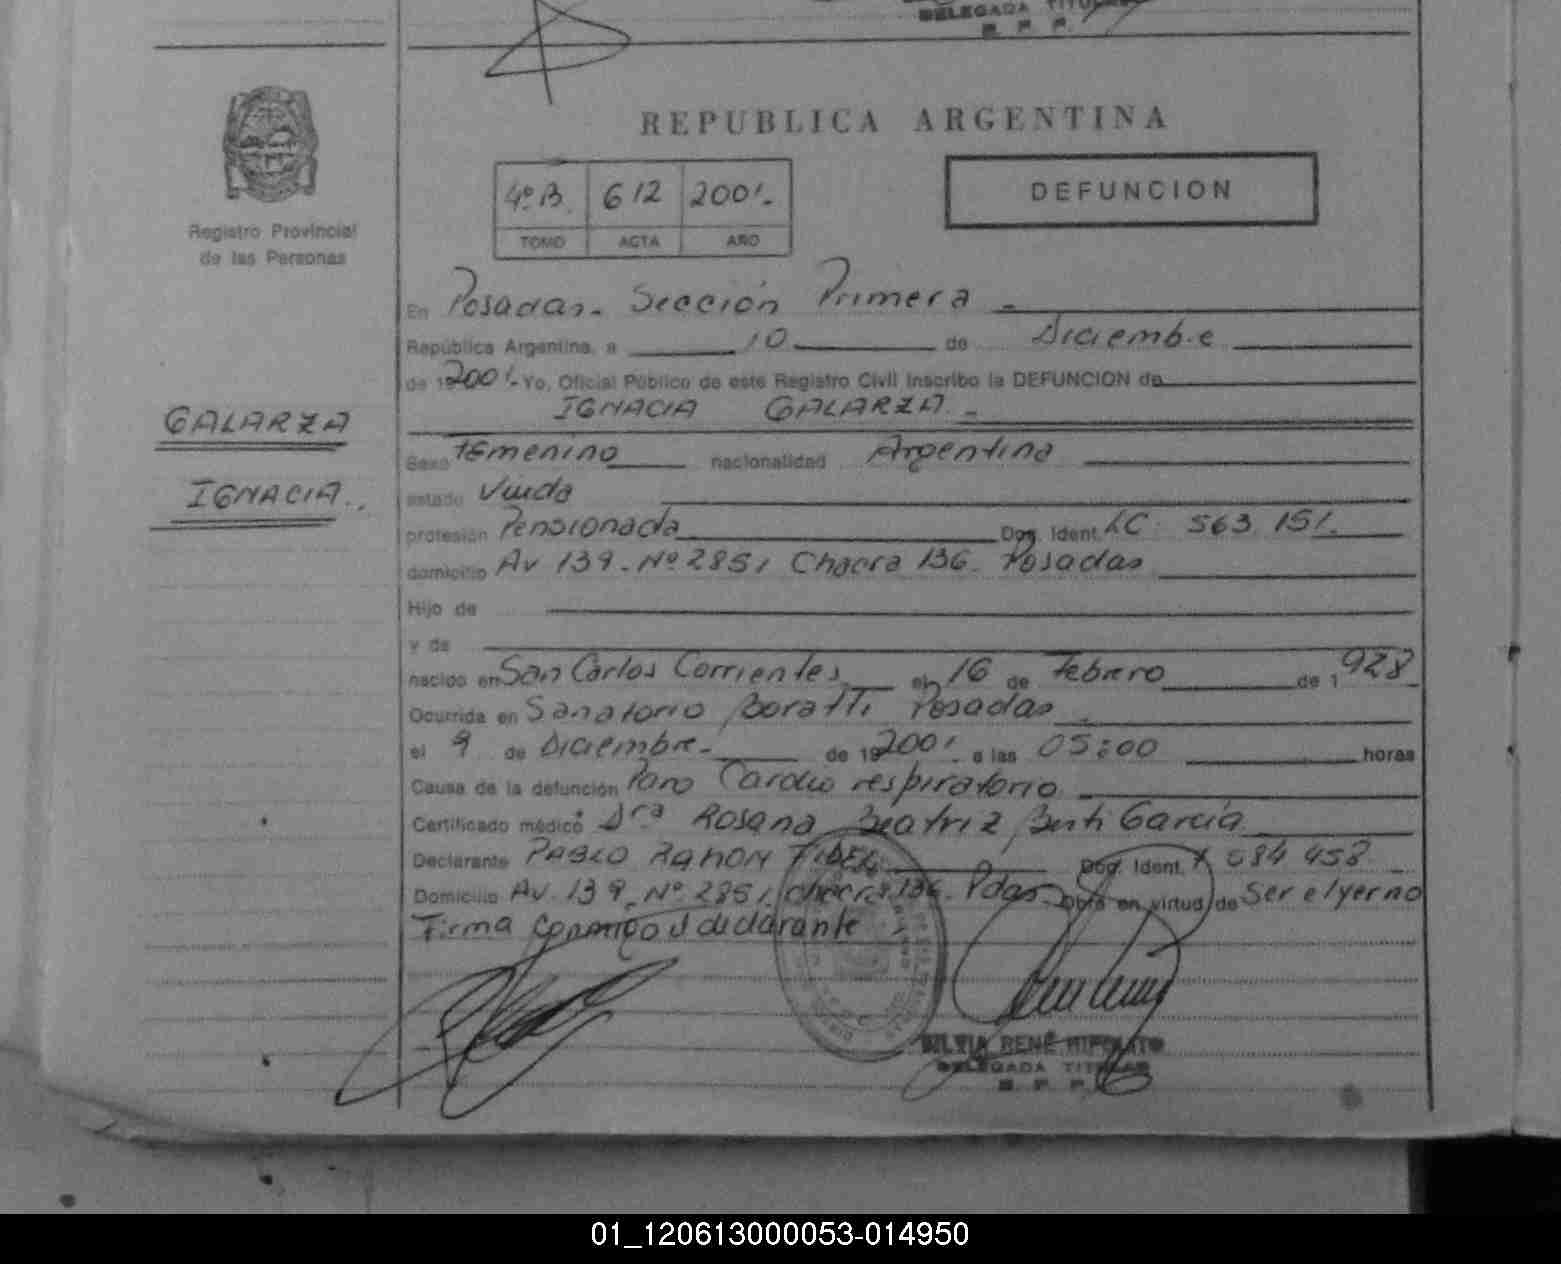 DELEGADA TITULAR
R. P. P.
REPUBLICA ARGENTINA
4º B. 612 2001.-
TOMO ACTA AÑO
DEFUNCION
Registro Provincial
de las Personas
En Posadas. Sección Primera -
República Argentina, a 10 de Diciembre
de 19 2001.- Yo, Oficial Público de este Registro Civil inscribo la DEFUNCION de
IGNACIA GALARZA. -
GALARZA
IGNACIA..
Sexo Femenino nacionalidad Argentina
estado Viuda
profesión Pensionada Doc. Ident. LC. 563.151.
domicilio Av 139. Nº 2851 Chacra 136. Posadas
Hijo de
y de
nacido en San Carlos Corrientes el 16 de Febrero de 1928
Ocurrida en Sanatorio Boratti Posadas
el 9 de Diciembre.- de 19 2001. a las 05:00 horas
Causa de la defunción Paro Cardio respiratorio
Certificado médico Dra Rosana Beatriz Berti García
Declarante PABLO RAMON FIDEL Doc. Ident. 684 458.
Domicilio Av. 139. Nº 2851. chacra 136. Pdas. Obra en virtud de Ser el yerno
Firma conmigo el declarante
SILVIA RENÉ HIPOLITO
DELEGADA TITULAR
R. P. P.
01_120613000053-014950